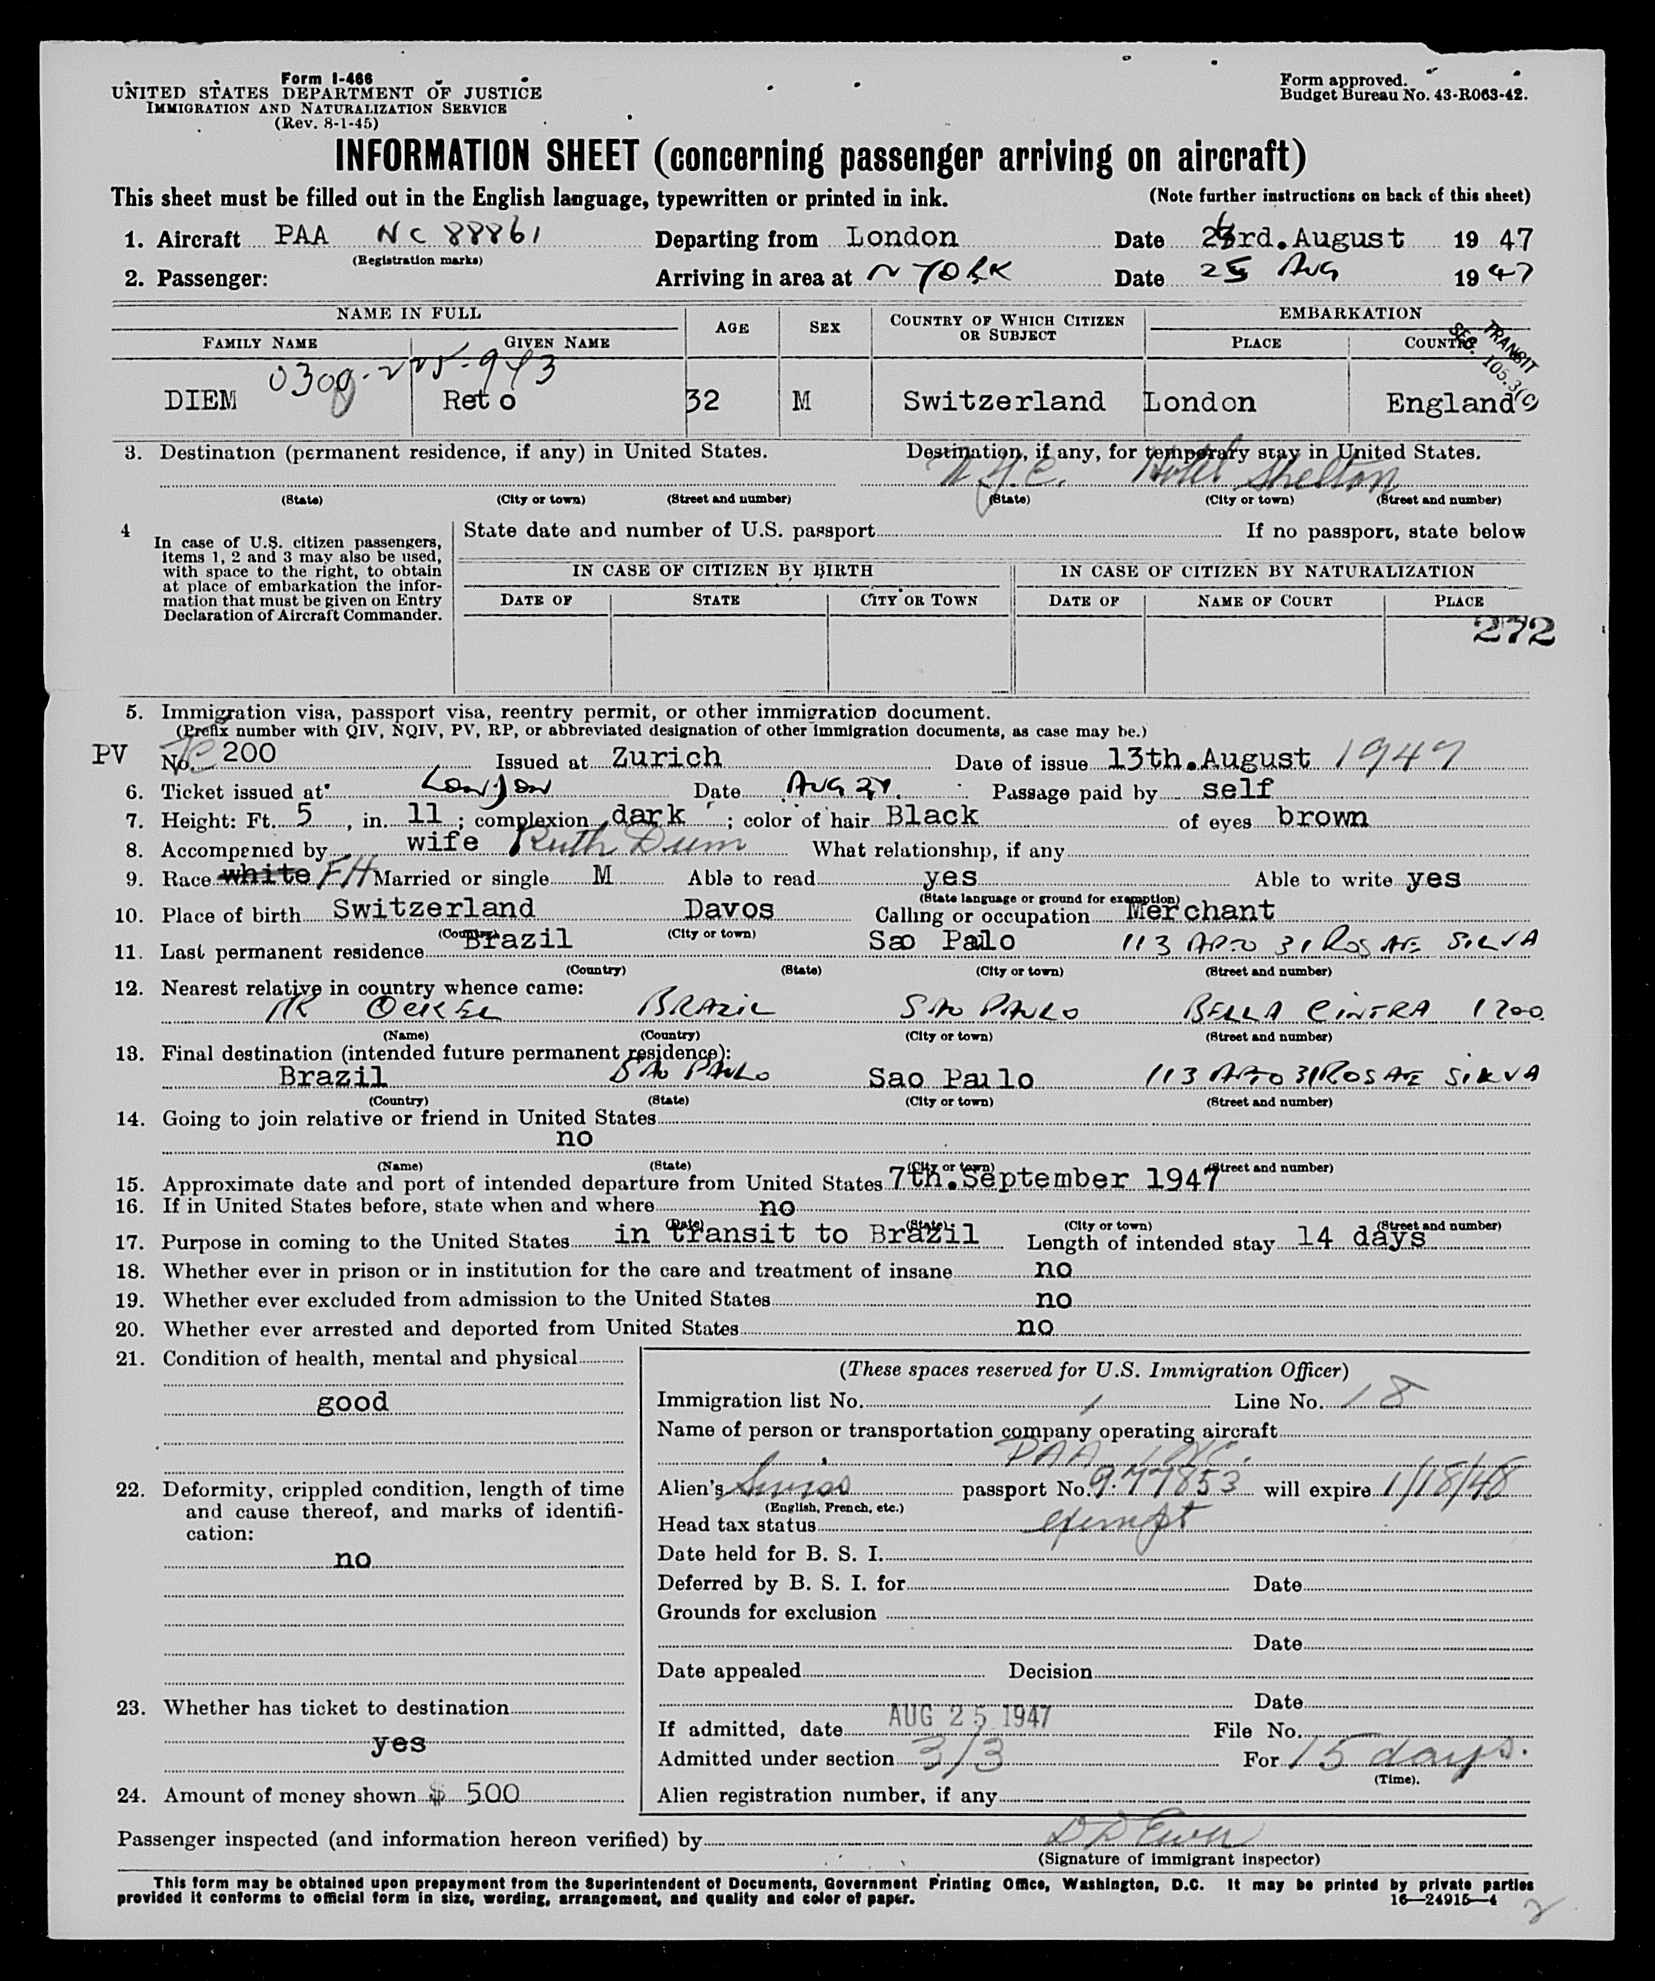 Form I-466
UNITED STATES DEPARTMENT OF JUSTICE
IMMIGRATION AND NATURALIZATION SERVICE
(Rev. 8-1-45)
Form approved.
Budget Bureau No. 43-R063-42.
INFORMATION SHEET (concerning passenger arriving on aircraft)
This sheet must be filled out in the English language, typewritten or printed in ink. (Note further instructions on back of this sheet)
1. Aircraft PAA NC 88861 Departing from London Date 23rd.August 19 47
(Registration marks)
2. Passenger: Arriving in area at N YORK Date 25 AUG 19 47
NAME IN FULL AGE SEX COUNTRY OF WHICH CITIZEN OR SUBJECT EMBARKATION
FAMILY NAME GIVEN NAME PLACE COUNTRY
TRANSIT
SEC. 105.3(C)
0300-225-943
DIEM Reto 32 M Switzerland London England
3. Destination (permanent residence, if any) in United States. Destination, if any, for temporary stay in United States.
N.Y.C. Hotel Shelton
(State) (City or town) (Street and number) (State) (City or town) (Street and number)
4 In case of U.S. citizen passengers, items 1, 2 and 3 may also be used, with space to the right, to obtain at place of embarkation the information that must be given on Entry Declaration of Aircraft Commander.
State date and number of U.S. passport If no passport, state below
IN CASE OF CITIZEN BY BIRTH IN CASE OF CITIZEN BY NATURALIZATION
DATE OF STATE CITY OR TOWN DATE OF NAME OF COURT PLACE
272
5. Immigration visa, passport visa, reentry permit, or other immigration document.
(Prefix number with QIV, NQIV, PV, RP, or abbreviated designation of other immigration documents, as case may be.)
PV No. 200 Issued at Zurich Date of issue 13th.August 1947
6. Ticket issued at London Date Aug 21. Passage paid by self
7. Height: Ft. 5, in. 11; complexion dark; color of hair Black of eyes brown
8. Accompanied by wife Ruth Diem What relationship, if any
9. Race white FH Married or single M Able to read yes Able to write yes
(State language or ground for exemption)
10. Place of birth Switzerland Davos Calling or occupation Merchant
(Country) (City or town)
11. Last permanent residence Brazil Sao Palo 113 APTO 31 ROSAE SILVA
(Country) (State) (City or town) (Street and number)
12. Nearest relative in country whence came:
OCKEL BRAZIL SAO PAULO BELLA CINTRA 1200
(Name) (Country) (City or town) (Street and number)
13. Final destination (intended future permanent residence):
Brazil SAO PAULO Sao Paulo 113 APTO 31 ROSAE SILVA
(Country) (State) (City or town) (Street and number)
14. Going to join relative or friend in United States
no
(Name) (State) (City or town) (Street and number)
15. Approximate date and port of intended departure from United States 7th.September 1947
16. If in United States before, state when and where no
(Date) (State) (City or town) (Street and number)
17. Purpose in coming to the United States in transit to Brazil Length of intended stay 14 days
18. Whether ever in prison or in institution for the care and treatment of insane no
19. Whether ever excluded from admission to the United States no
20. Whether ever arrested and deported from United States no
21. Condition of health, mental and physical
good
22. Deformity, crippled condition, length of time and cause thereof, and marks of identification:
no
23. Whether has ticket to destination
yes
24. Amount of money shown $ 500
(These spaces reserved for U.S. Immigration Officer)
Immigration list No. 1 Line No. 18
Name of person or transportation company operating aircraft
PAA INC.
Alien's Swiss passport No. 977853 will expire 1/18/48
(English, French, etc.)
Head tax status exempt
Date held for B. S. I.
Deferred by B. S. I. for Date
Grounds for exclusion
Date
Date appealed Decision
Date
If admitted, date AUG 25 1947 File No.
Admitted under section 3/3 For 15 days.
(Time).
Alien registration number, if any
Passenger inspected (and information hereon verified) by
(Signature of immigrant inspector)
This form may be obtained upon prepayment from the Superintendent of Documents, Government Printing Office, Washington, D.C. It may be printed by private parties
provided it conforms to official form in size, wording, arrangement, and quality and color of paper. 16—24915—4
2